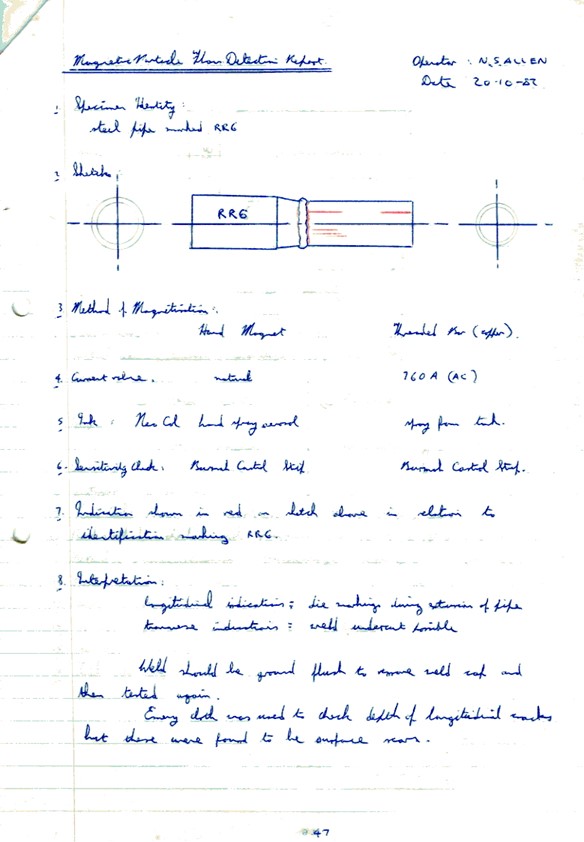 Magnetic Particle Flaw Detection Report.
Operator : N.S. ALLEN
Date 20-10-82
1. Specimen Identity:
steel pipe marked RR6
2. Sketch
RR6
3. Method of Magnetisation:
Hand Magnet
Threaded Bar (copper).
4. Current value.
natural
760 A (AC)
5. Ink : Neo Col hand spray aerosol
spray from tank.
6. Sensitivity Check : Burmah Castrol Strip
Burmah Castrol Strip.
7. Indication shown in red on sketch above in relation to
identification marking RR6.
8. Interpretation:
longitudinal indications ; die markings during extrusion of pipe
transverse indications : weld undercut possible
Weld should be ground flush to remove weld cap and
then tested again.
Emery cloth was used to check depth of longitudinal cracks
but these were found to be surface scars.
47